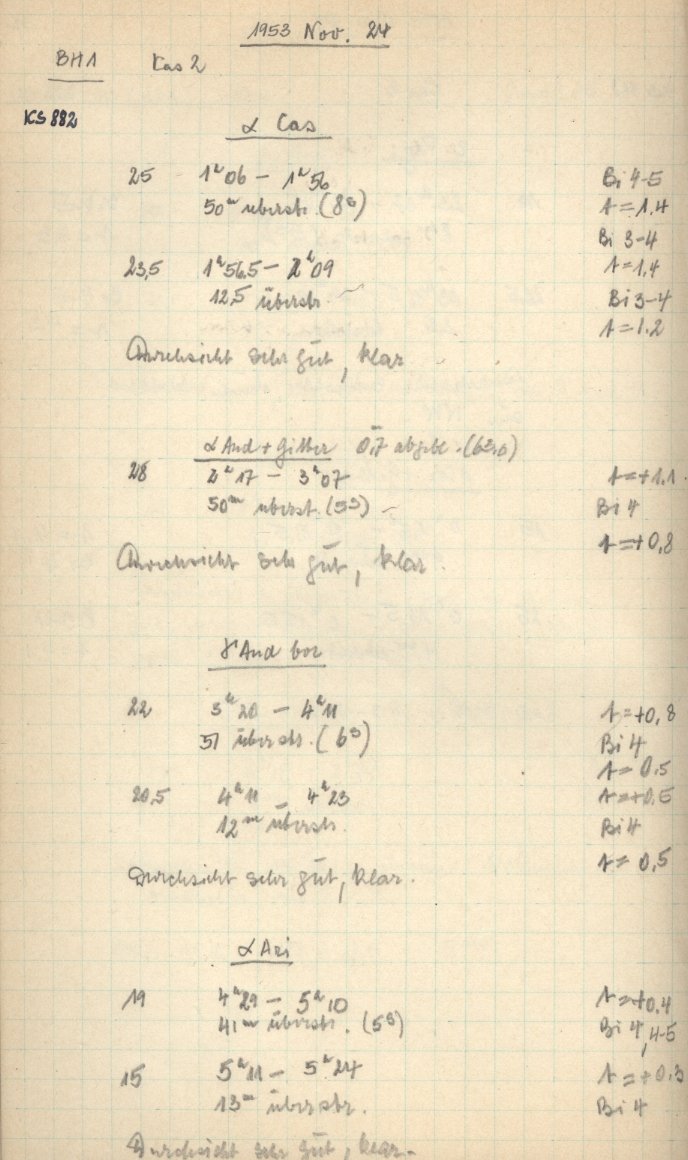 1953 Nov. 24
BH1 Kas 2
KS 882
α Cas
25 1ʰ06 – 1ʰ56 Bi 4-5
50ᵐ überstr. (8ˢ) t=1.4
Bi 3-4
23,5 1ʰ56.5 – 2ʰ09 t=1,4
12.5 überstr. Bi 3-4
t=1.2
Durchsicht sehr gut, klar
α And + Gitter 0,7 abgebl. (6ˢ,0)
28 2ʰ17 – 3ʰ07 t=+1.1
50ᵐ überst. (5ˢ) Bi 4
t=+0,8
Durchsicht sehr gut, klar.
γ And bor
22 3ʰ20 – 4ʰ11 t=+0,8
51 überstr. (6ˢ) Bi 4
t=0.5
20,5 4ʰ11 – 4ʰ23 t=+0.5
12ᵐ überstr. Bi 4
t=0,5
Durchsicht sehr gut, klar.
α Ari
19 4ʰ29 – 5ʰ10 t=+0.4
41ᵐ überstr. (5ˢ) Bi 4, 4-5
15 5ʰ11 – 5ʰ24 t=+0.3
13ᵐ überstr. Bi 4
Durchsicht sehr gut, klar.